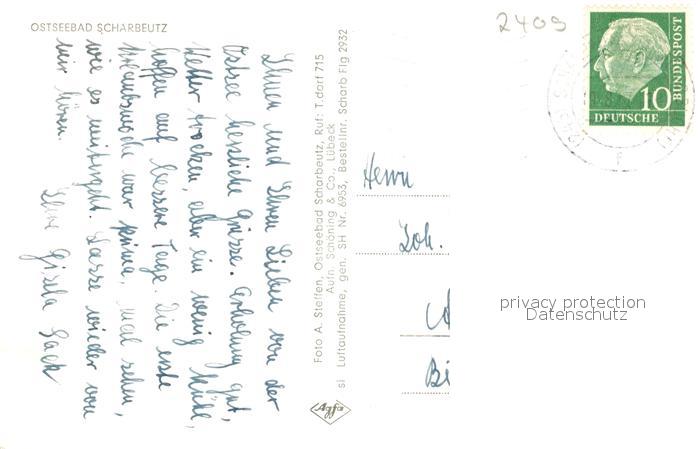 OSTSEEBAD SCHARBEUTZ
Ihnen und Ihren Lieben von der
Ostsee herzliche Grüsse. Erholung gut,
Wetter trocken, aber ein wenig kühl,
hoffen auf bessere Tage. Die erste
Urlaubswoche war prima, mal sehen,
wie es weitergeht. Lasse wieder von
mir hören.
Ihre Gisela Sack
Foto A. Steffen, Ostseebad Scharbeutz, Ruf: T.dorf 715
Aufn. Schöning & Co., Lübeck
si Luftaufnahme, gen. SH Nr. 6953, Bestellnr. Scharb Flg 2932
Agfa
2409
DEUTSCHE
BUNDESPOST
10
Herrn
Joh.
Bi
privacy protection
Datenschutz